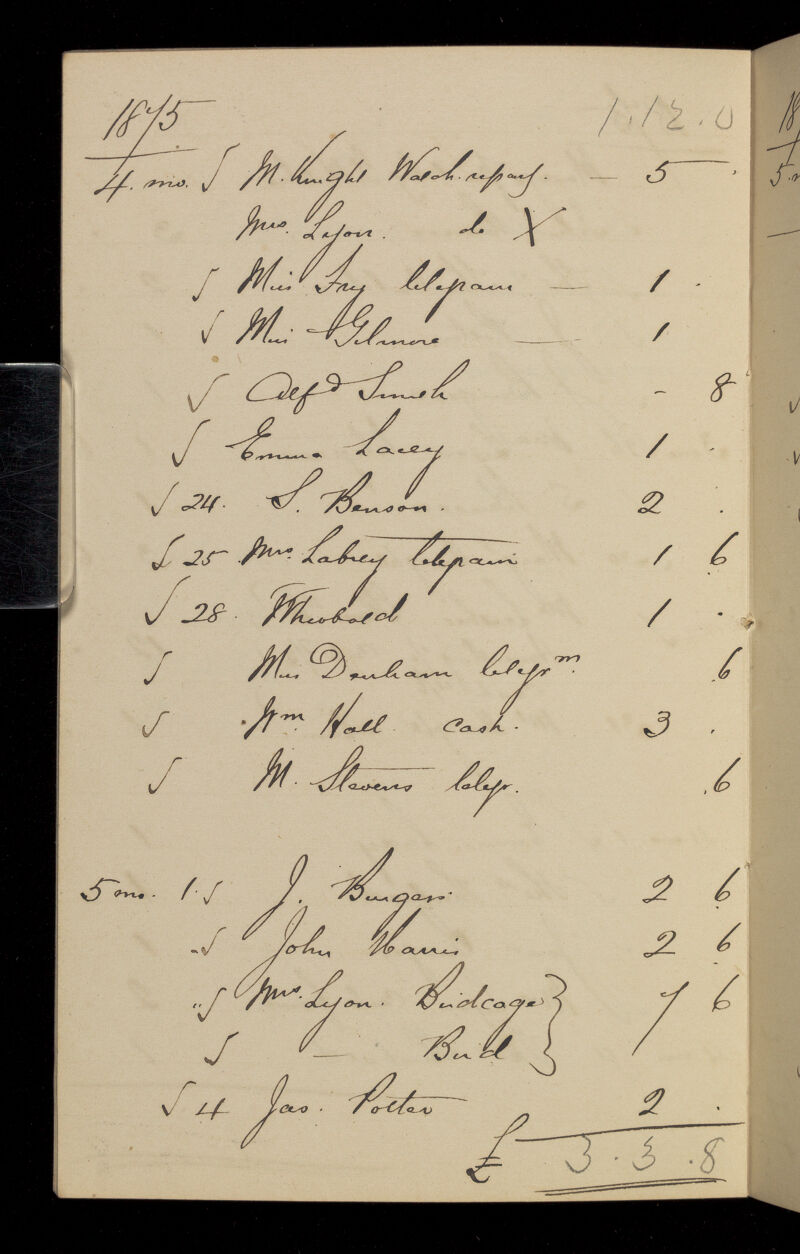 1875 1.12.0
4. mo. M. Knight Watch repairg. — 5 .
Mrs. Lyon. do X
Miss Fry telegram — 1 .
Miss Gilmore — 1
Alfd Smith - 8
Emma Lacey 1 .
24. S. Benson. 2 .
25 Mrs. Labrey telegram 1 6
28. Theobald 1 .
Miss Denham telegrm. 6
Wm. Hall cash. 3 .
M. Stevens telegr. .6
5 mo. 1. J. Burgess 2 6
" John Harris 2 6
" Mrs. Lyon. Birdcage } 7 6
— Bird
4 Jas. Potter 2 .
£ 3.3.8
18
5.